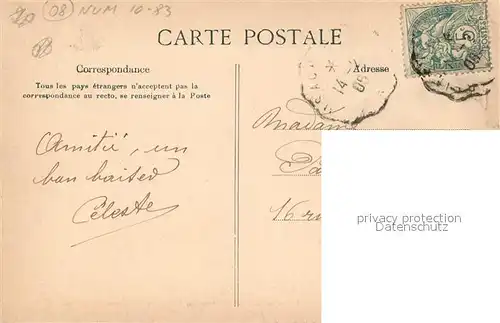 (08) NUM 10-83
CARTE POSTALE
Correspondance
Adresse
Tous les pays étrangers n'acceptent pas la
correspondance au recto, se renseigner à la Poste
14
08
Madame
Amitié, un
bon baiser
Céleste
16 ru
privacy protection
Datenschutz